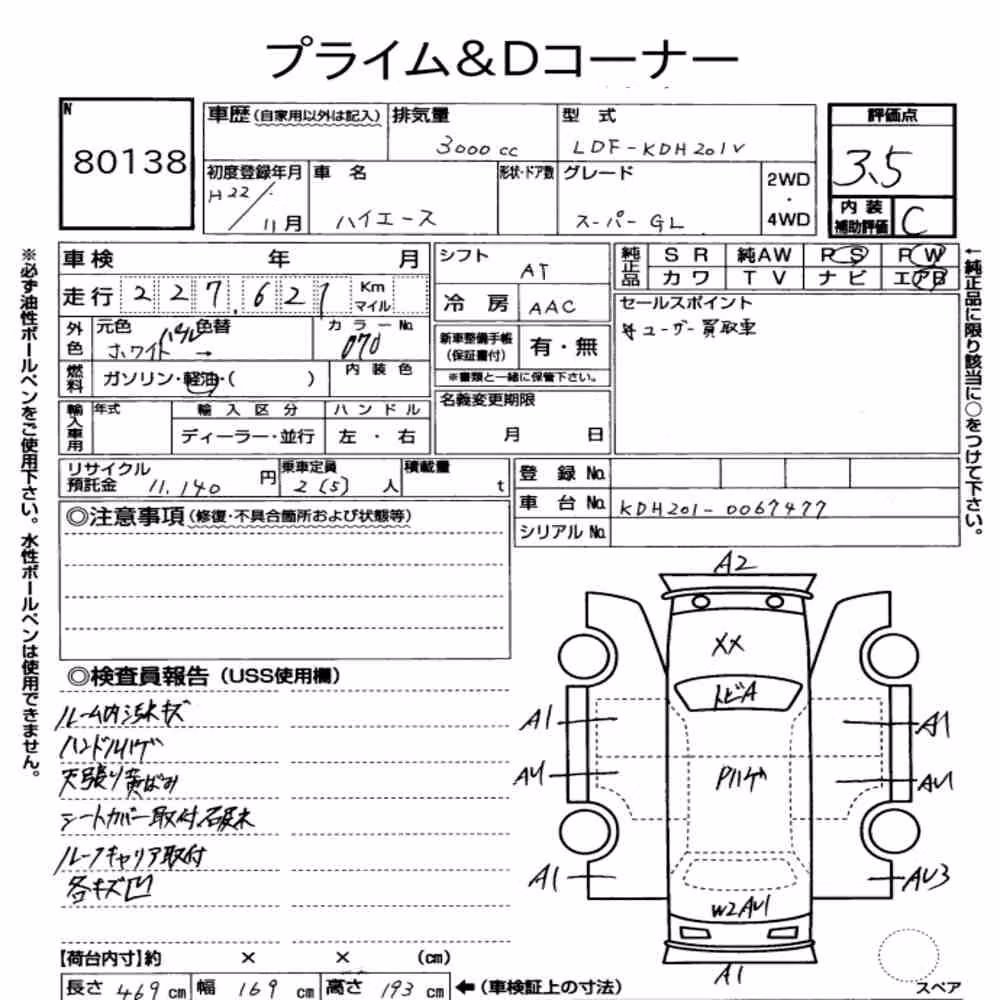 プライム&Dコーナー
N
80138
車歴(自家用以外は記入)
排気量
3000cc
型式
LDF-KDH201V
評価点
3.5
初度登録年月
H22/11月
車名
ハイエース
形状・ドア数
グレード
スーパーGL
2WD
・
4WD
内装
補助評価
C
車検 年 月
走行 227,621 Km マイル
外色
元色
ホワイト
パール
色替
→
カラーNo.
070
燃料
ガソリン・軽油・( )
内装色
輸入車用
年式
輸入区分
ハンドル
ディーラー・並行
左・右
シフト
AT
冷房
AAC
新車整備手帳
(保証書付)
有・無
※書類と一緒に保管下さい。
名義変更期限
月 日
純正品
SR
純AW
PS
PW
カワ
TV
ナビ
エアB
セールスポイント
ユーザー買取車
リサイクル
預託金
11,140
円
乗車定員
2(5)人
積載量
t
登録No.
車台No.
KDH201-0067477
シリアルNo.
◎注意事項(修復・不具合箇所および状態等)
◎検査員報告(USS使用欄)
ルーム内汚れキズ
ハンドルハゲ
天張り黄ばみ
シートカバー取付
ルーフキャリア取付
各キズ凹
【荷台内寸】約 × × (cm)
長さ 469cm
幅 169cm
高さ 193cm
←(車検証上の寸法)
A2
XX
トビA
A1
A1
AU
Pハゲ
AU1
A1
AU3
W2AU1
A1
スペア
※必ず油性ボールペンをご使用下さい。水性ボールペンは使用できません。
←純正品に限り該当に○をつけて下さい。